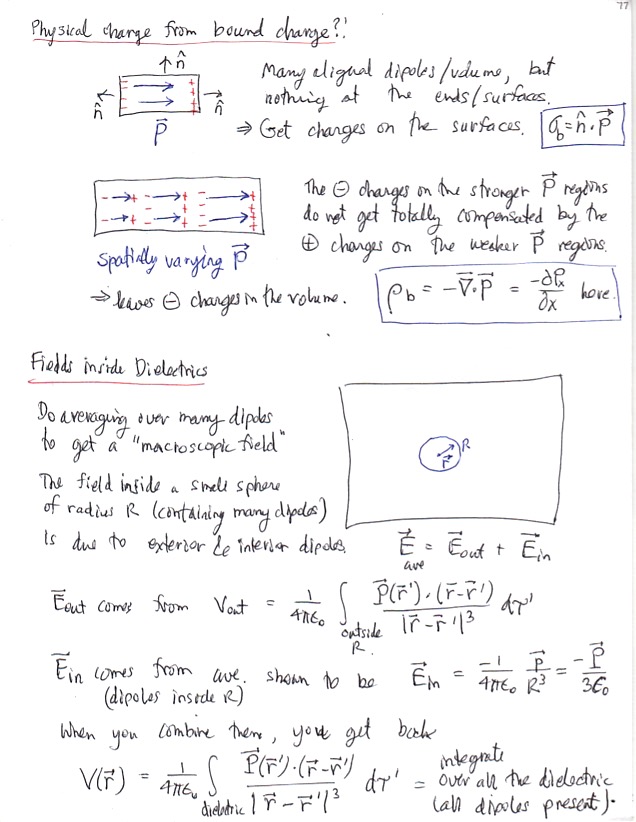 77
Physical charge from bound charge?!
↑ n̂
n̂ ← → n̂
P⃗
Many aligned dipoles/volume, but
nothing at the ends/surfaces.
⇒ Get charges on the surfaces. σ_b = n̂ · P⃗
The ⊖ charges on the stronger P⃗ regions
do not get totally compensated by the
⊕ charges on the weaker P⃗ regions.
Spatially varying P⃗
⇒ leaves ⊖ charges in the volume. ρ_b = -∇⃗·P⃗ = -∂P_x/∂x here.
Fields inside Dielectrics
Do averaging over many dipoles
to get a "macroscopic field"
R
r⃗
The field inside a small sphere
of radius R (containing many dipoles)
is due to exterior & interior dipoles. E⃗_ave = E⃗_out + E⃗_in
E⃗_out comes from V_out = 1/4πε₀ ∫_outside R. P⃗(r⃗')·(r⃗-r⃗')/|r⃗-r⃗'|³ dτ'
E⃗_in comes from ave. shown to be E⃗_in = -1/4πε₀ p⃗/R³ = -P⃗/3ε₀
(dipoles inside R)
When you combine them, you get back
V(r⃗) = 1/4πε₀ ∫_dielectric P⃗(r⃗')·(r⃗-r⃗')/|r⃗-r⃗'|³ dτ' = integrate
over all the dielectric
(all dipoles present).